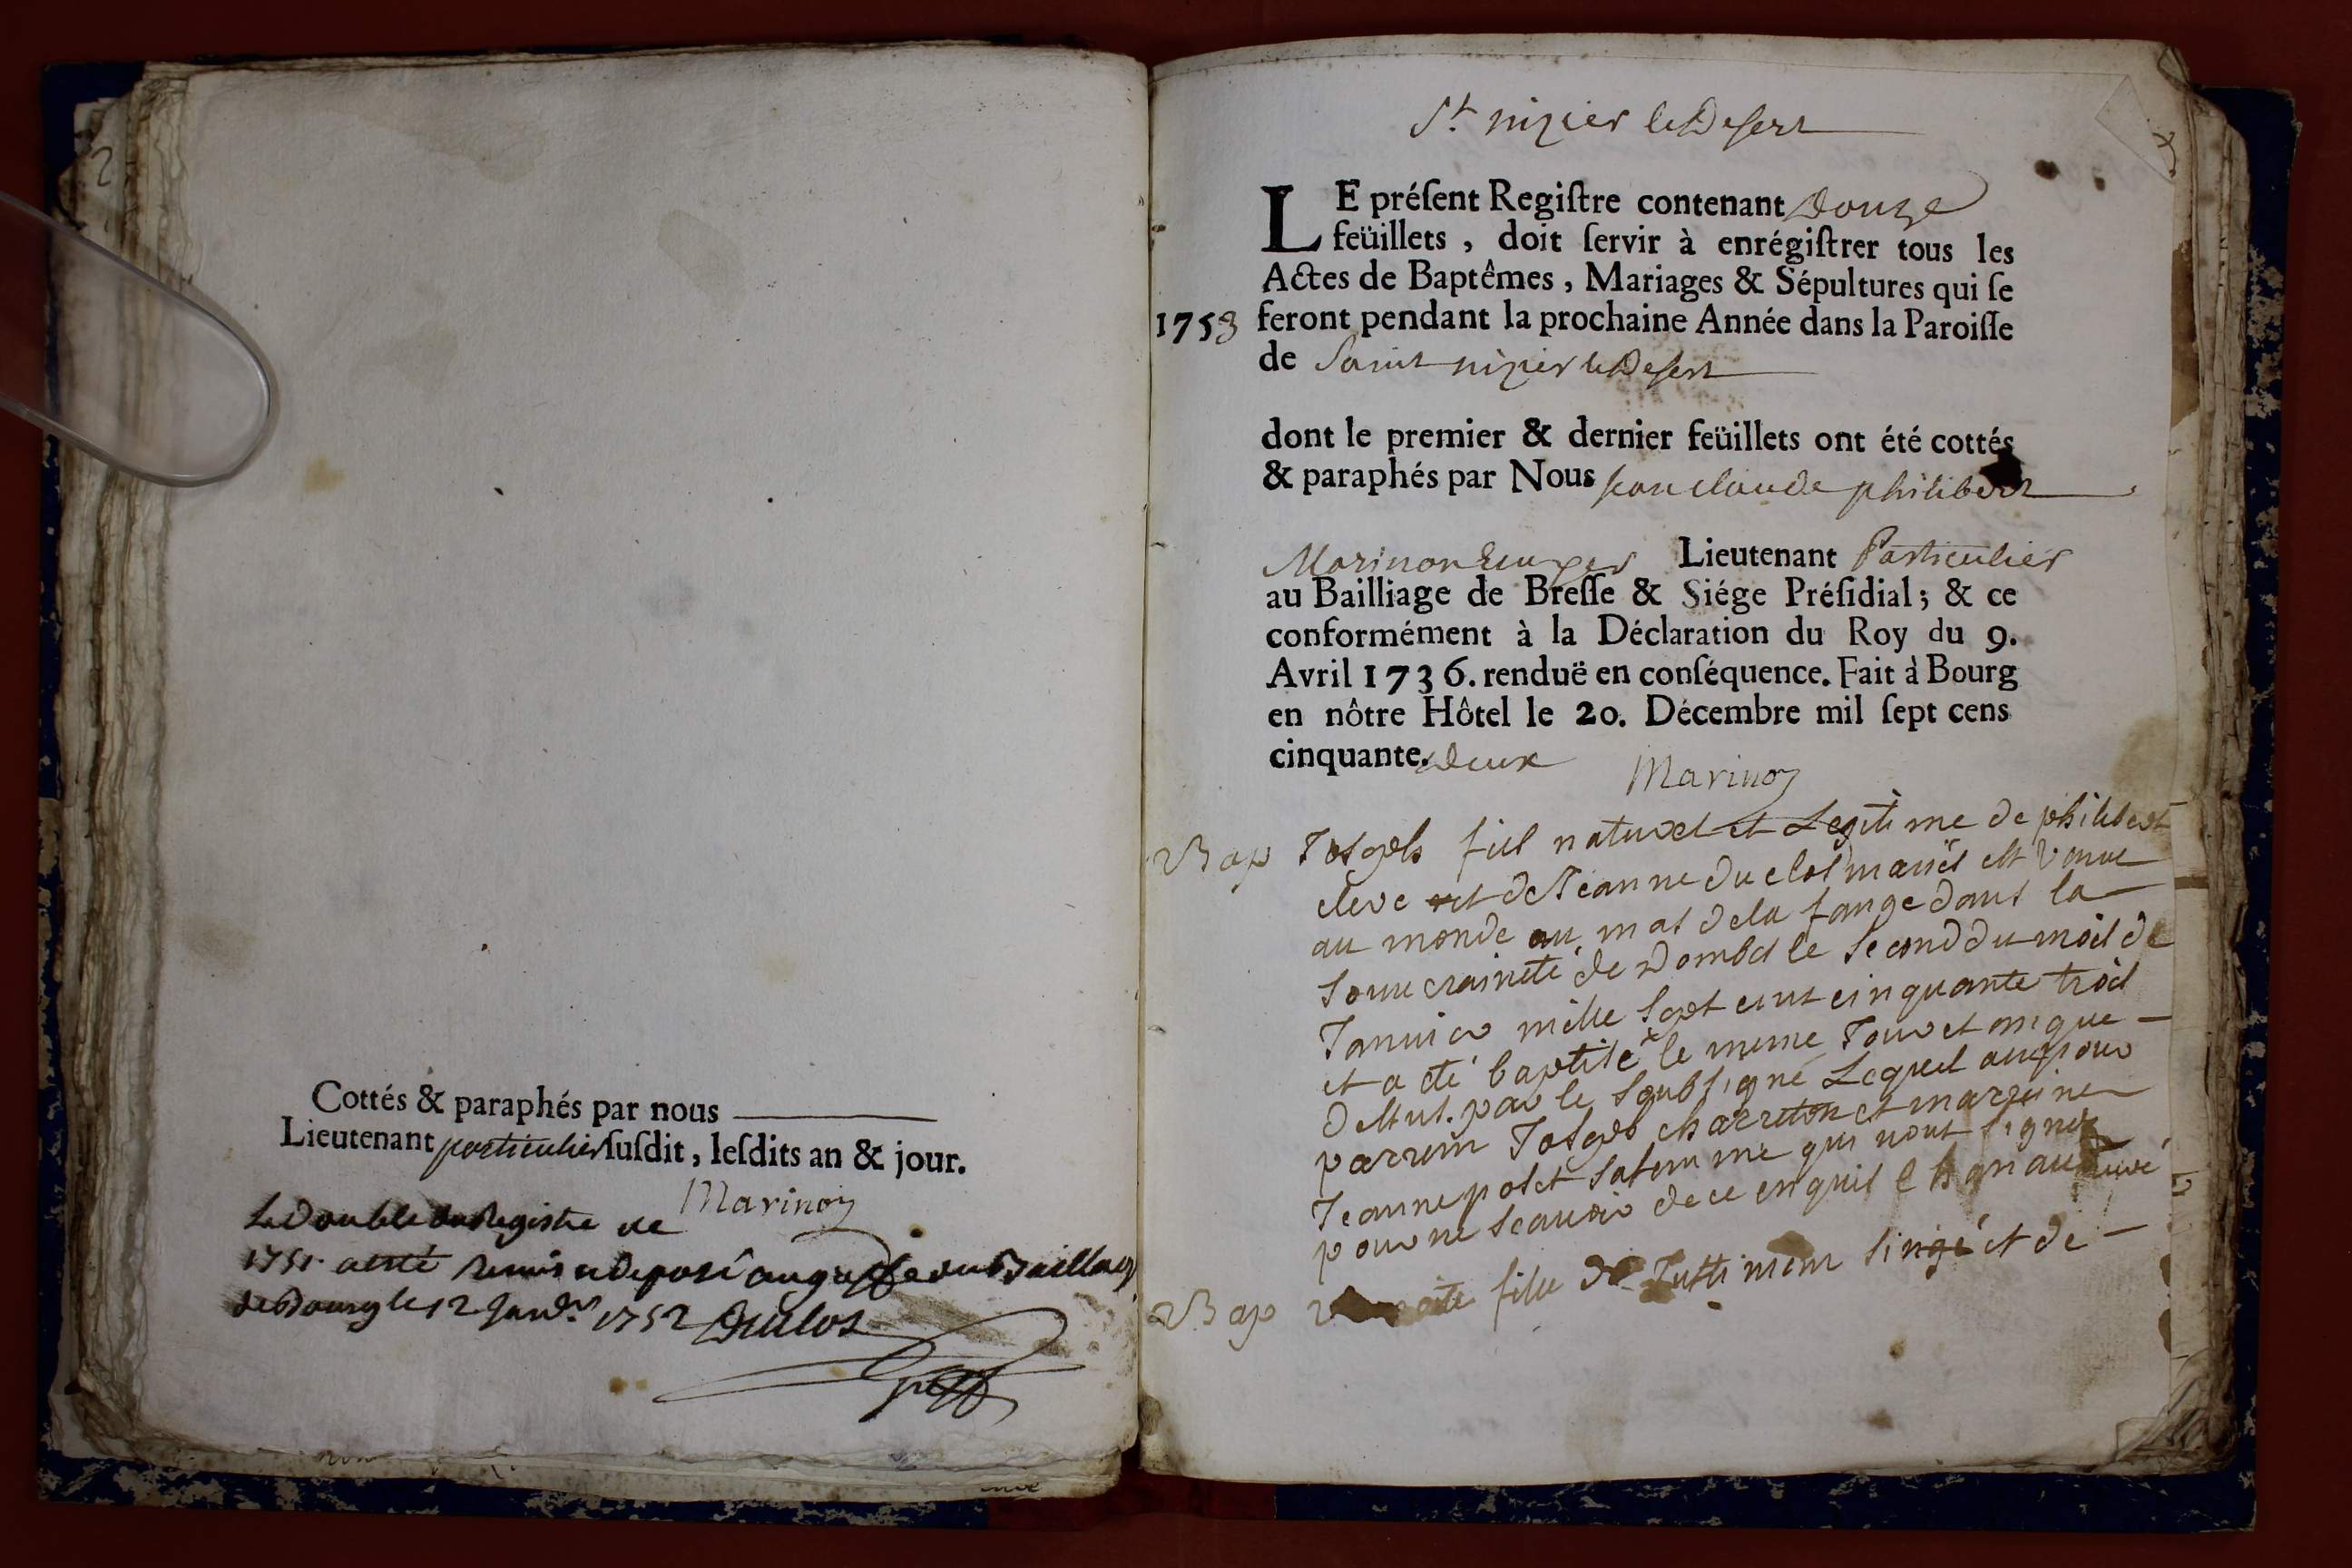 Cottés & paraphés par nous
Lieutenant particulier ſuſdit, leſdits an & jour.
Marinon
Le Double du Registre de
1751 a esté remis et deposé au greffe du Bailliage
de Bourg le 12 Janvr 1752 Duclos
St nizier le Desert
LE préſent Regiſtre contenant Douze
feüillets, doit ſervir à enrégiſtrer tous les
Actes de Baptêmes, Mariages & Sépultures qui ſe
1753 feront pendant la prochaine Année dans la Paroiſſe
de Saint nizier le Desert
dont le premier & dernier feüillets ont été cottés
& paraphés par Nous Jean claude philibert
Marinon Lieutenant Particulier
au Bailliage de Breſſe & Siége Préſidial; & ce
conformément à la Déclaration du Roy du 9.
Avril 1736. renduë en conſéquence. Fait à Bourg
en nôtre Hôtel le 20. Décembre mil ſept cens
cinquante. Deux
Marinon
Bap Joseph fils naturel et Legitime de philibert
cleve et de Jeanne du clos mariés est venu
au monde au mas de la fange dans la
souveraineté de Dombes le second du mois de
Janvier mille sept cent cinquante trois
et a été baptisé le meme Jour et an que
dessus. par le soubsigné Lequel a eu pour
parrein Joseph charreton et marreine
Jeanne poset sa femme qui n'ont signé
pour ne scavoir de ce enquis curé
Bap fille de et de
2